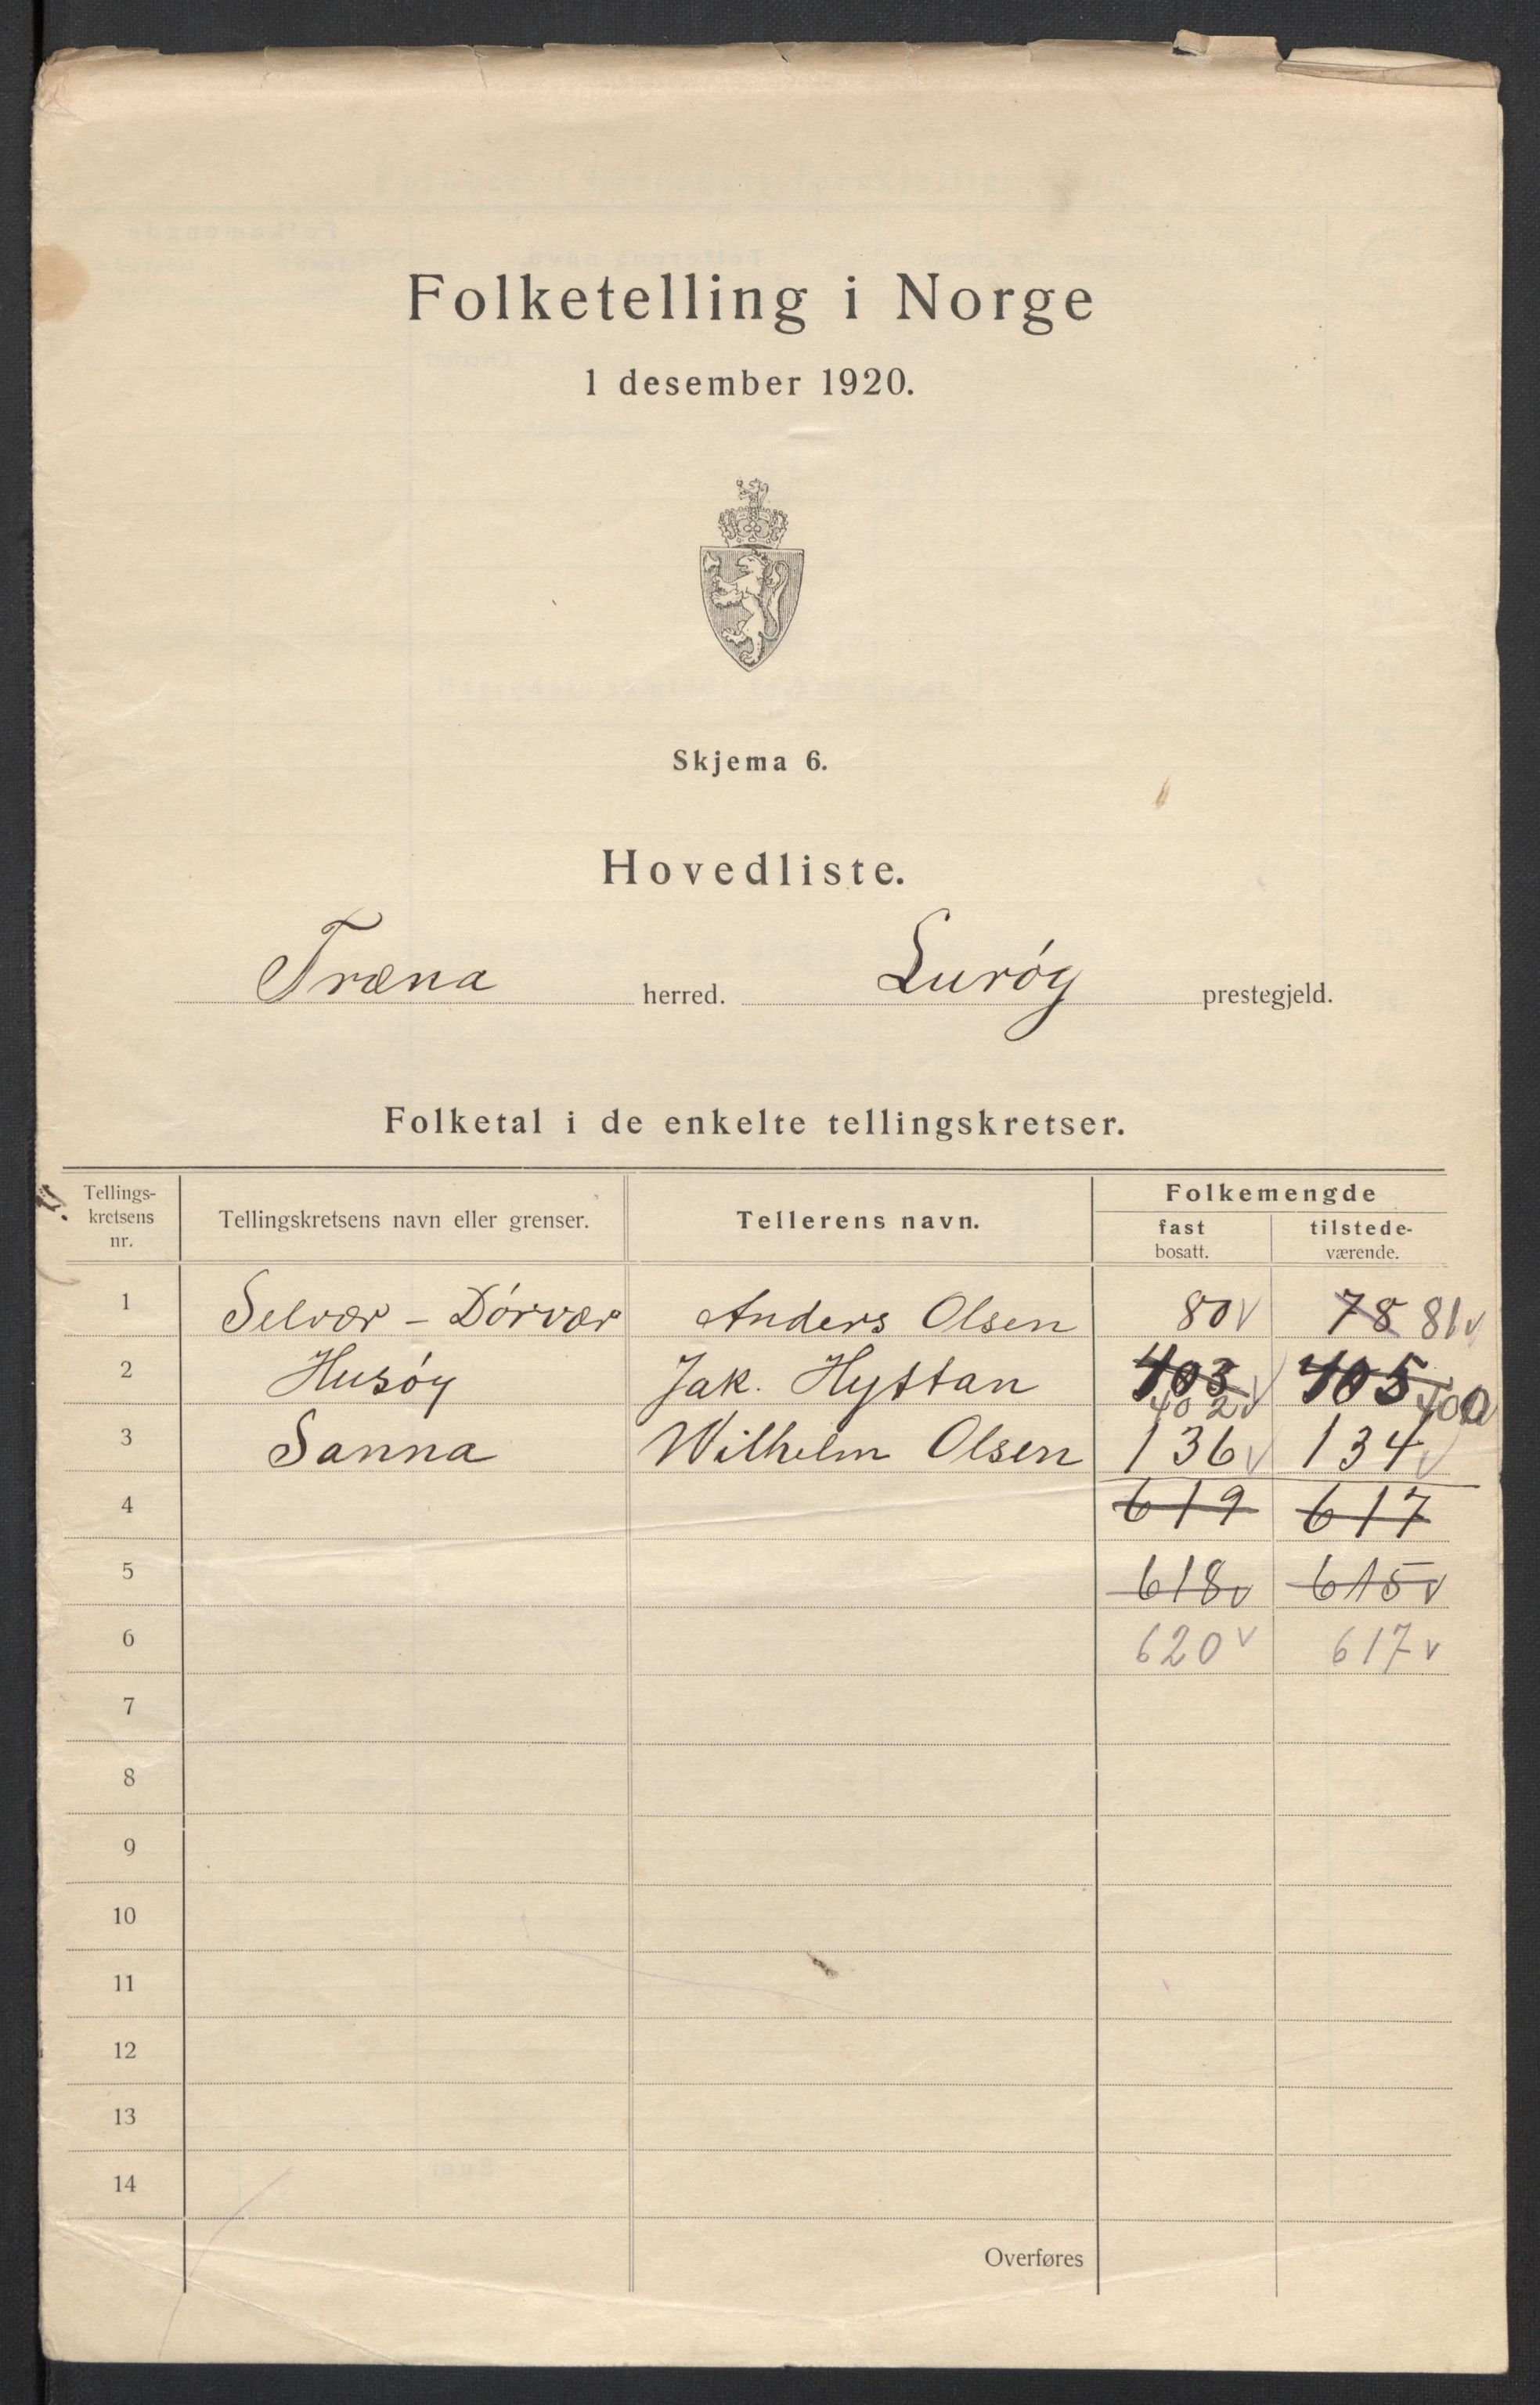 Folketelling i Norge
1 desember 1920.
Skjema 6.
Hovedliste.
Træna herred. Lurøy prestegjeld.
Folketal i de enkelte tellingskretser.
Tellings-
kretsens
nr.
Tellingskretsens navn eller grenser.
Tellerens navn.
Folkemengde
fast
bosatt.
tilstede-
værende.
1 Selvær - Dörvær Anders Olsen 80 v 78 81 v
2 Husöy Jak. Hyttan 403 v 405
402 v 400
3 Sanna Wilhelm Olsen 136 v 134 v
4 619 617
5 618 v 615 v
6 620 v 617 v
7
8
9
10
11
12
13
14
Overføres